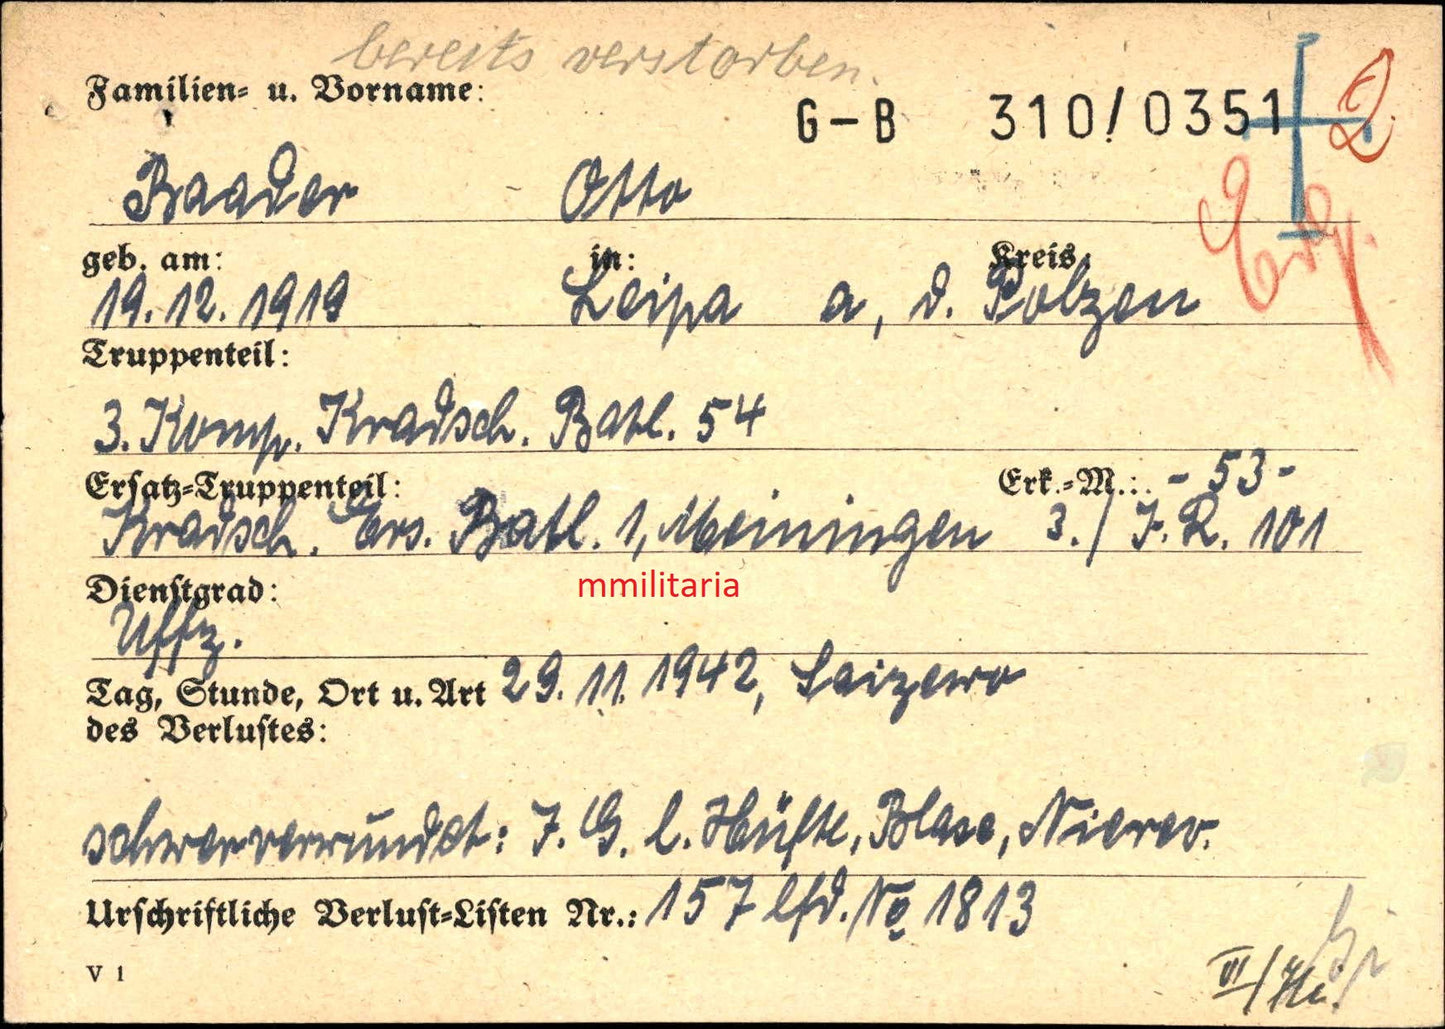 bereits verstorben.
Familien- u. Vorname:
G-B 310/0351
Baader Otto
geb. am: in: Kreis:
19.12.1919 Leipa a, d. Polzen
Truppenteil:
3. Komp. Kradsch. Batl. 54
Ersatz-Truppenteil: Erk.-M.: -53-
Kradsch. Ers. Batl. 1, Meiningen 3./J.R. 101
Dienstgrad:
Uffz.
Tag, Stunde, Ort u. Art 29.11.1942, Saizewo
des Verlustes:
schwerverwundet: J. G. l. Hüfte, Blase, Nierev.
Urschriftliche Verlust-Listen Nr.: 157 lfd. No 1813
V 1
mmilitaria